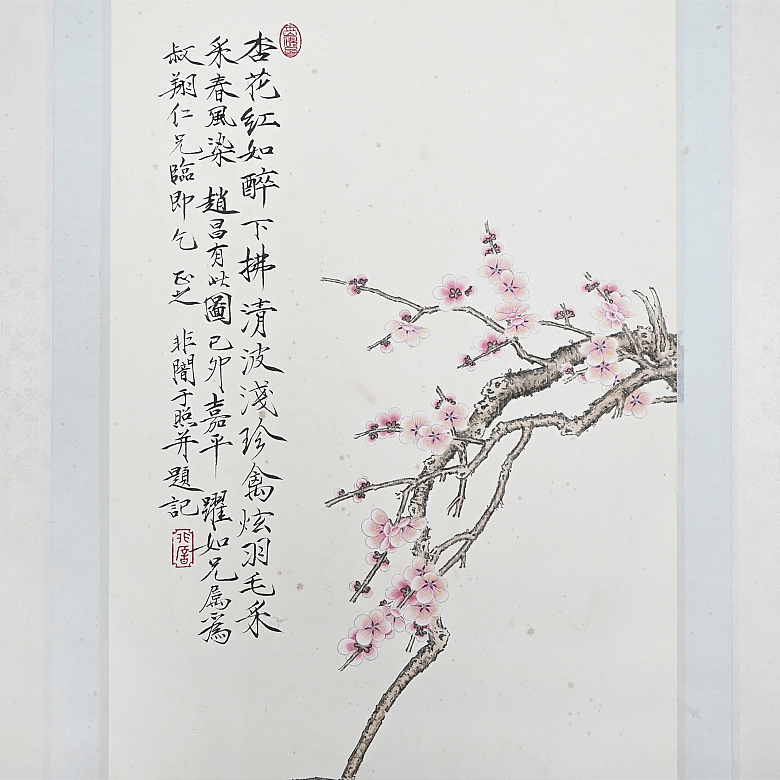 杏花紅如醉下拂清波淺珍禽炫羽毛采
采春風染 趙昌有此圖己卯嘉平 躍如兄屬爲
叔翔仁兄臨即乞 正之 非闇于照并題記
非闇